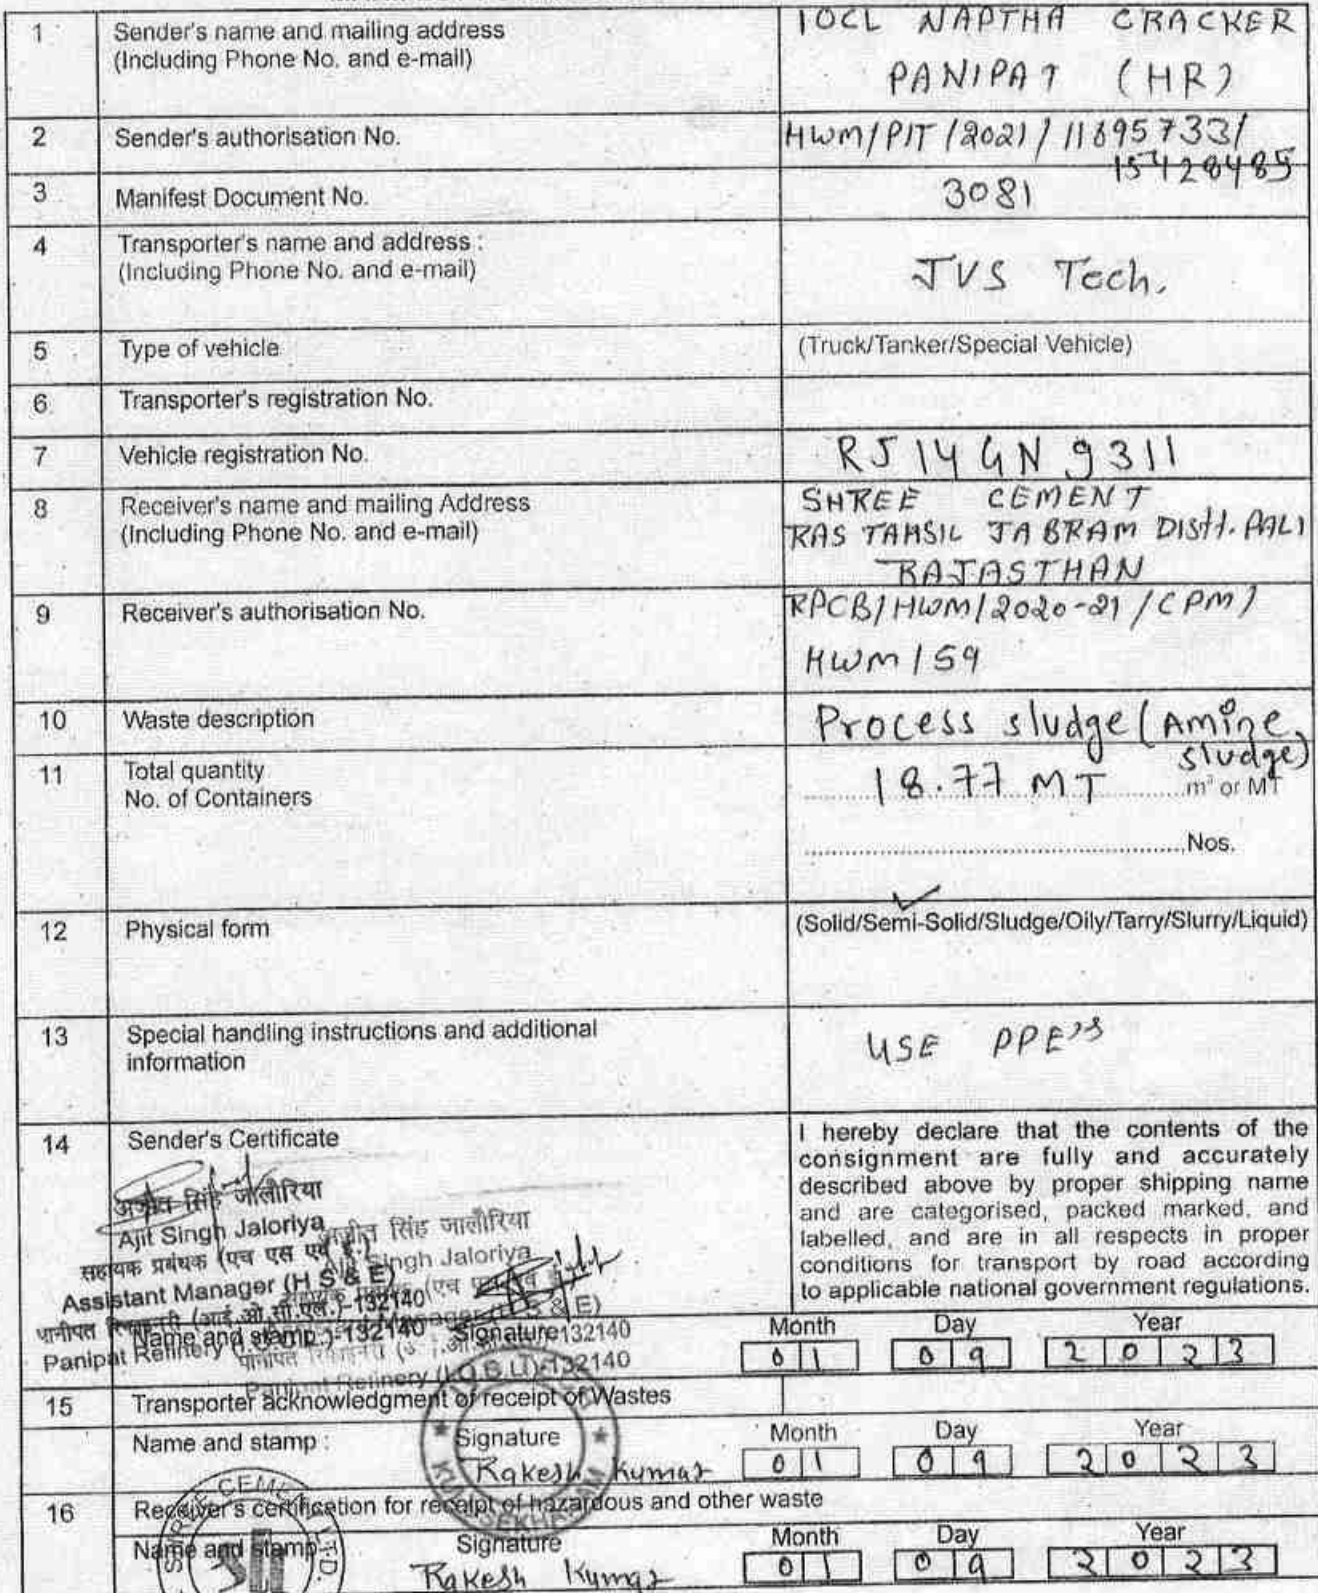 1 Sender's name and mailing address IOCL NAPTHA CRACKER
(Including Phone No. and e-mail) PANIPAT (HR)
2 Sender's authorisation No. HWM/PIT/2021/11895733/
15428485
3 Manifest Document No. 3081
4 Transporter's name and address :
(Including Phone No. and e-mail) JVS Tech.
5 Type of vehicle (Truck/Tanker/Special Vehicle)
6. Transporter's registration No.
7 Vehicle registration No. RJ 14 GN 9311
8 Receiver's name and mailing Address SHREE CEMENT
(Including Phone No. and e-mail) RAS TAHSIL JABRAM Distt. PALI
RAJASTHAN
9 Receiver's authorisation No. RPCB/HWM/2020-21/CPM/
HWM/59
10 Waste description Process sludge (Amine
sludge)
11 Total quantity 18.77 MT m³ or MT
No. of Containers
Nos.
12 Physical form (Solid/Semi-Solid/Sludge/Oily/Tarry/Slurry/Liquid)
13 Special handling instructions and additional USE PPE's
information
14 Sender's Certificate I hereby declare that the contents of the
consignment are fully and accurately
described above by proper shipping name
and are categorised, packed marked, and
labelled, and are in all respects in proper
conditions for transport by road according
to applicable national government regulations.
अजीत सिंह जालौरिया
Ajit Singh Jaloriya
सहायक प्रबंधक (एच एस एवं ई.)
Assistant Manager (H S & E)
पानीपत रिफाइनरी (आई.ओ.सी.एल.)-132140
Panipat Refinery
अजीत सिंह जालौरिया
Singh Jaloriya
Panipat Refinery 132140
Name and stamp Signature Month Day Year
01 09 2023
15 Transporter acknowledgment of receipt of Wastes
Name and stamp : Signature Month Day Year
Rakesh Kumar 01 09 2023
16 Receiver's certification for receipt of hazardous and other waste
Name and stamp Signature Month Day Year
Rakesh Kumar 01 09 2023
SHREE CEMENT LTD.